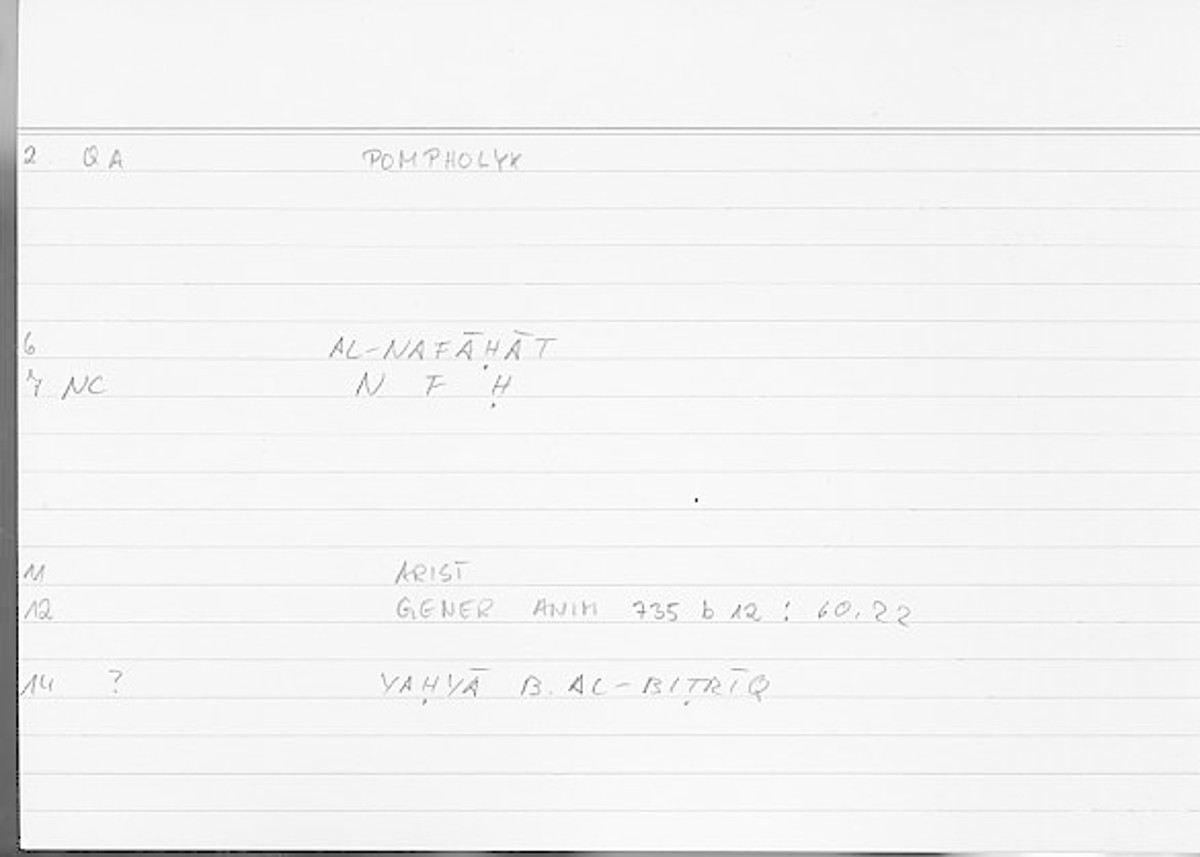 2 QA POMPHOLYX
6 AL-NAFĀḤĀT
7 NC N F Ḥ
11 ARIST
12 GENER ANIM 735 b 12 : 60.22
14 ? YAḤYĀ B. AL-BIṬRĪQ